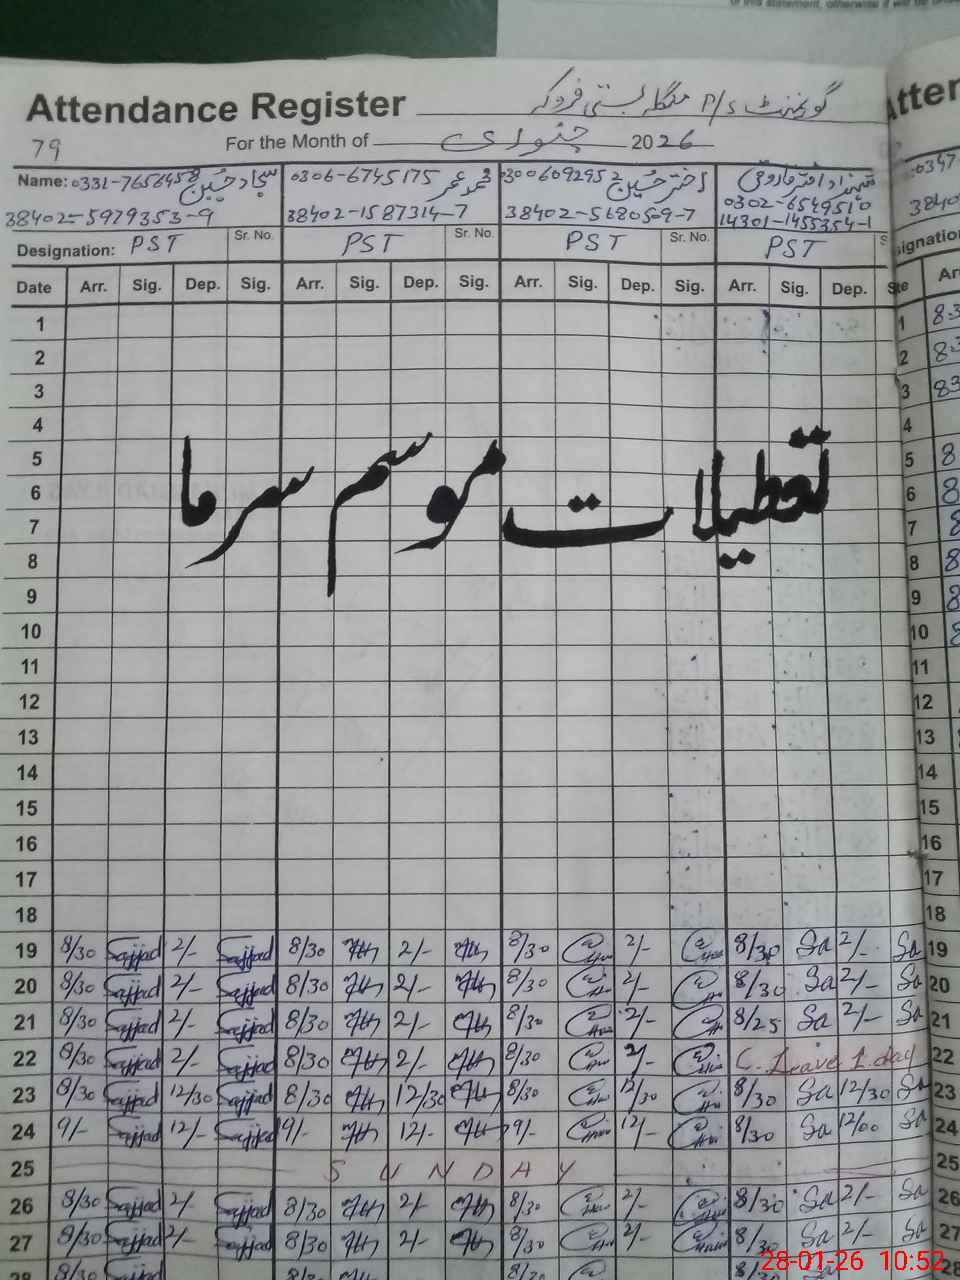 of this statement, otherwise it will be
Attendance Register گورنمنٹ P/S منگلہ بستی فروکہ
79 For the Month of جنوری 2026
Name: 0331-7656458 سجاد حسین 0306-6745175 محمد عمر 0300609295 اختر حسین
38402-5979353-9 38402-1587314-7 38402-5680509-7 0302-6549510
14301-1455354-1
Designation: PST Sr. No. PST Sr. No. PST Sr. No. PST
Date Arr. Sig. Dep. Sig. Arr. Sig. Dep. Sig. Arr. Sig. Dep. Sig. Arr. Sig. Dep.
1
2
3
4
5
6
7
8
تعطیلات موسم سرما
9
10
11
12
13
14
15
16
17
18
19 8/30 Sajjad 2/- Sajjad 8/30 2/- 8/30 2/- 8/30 Sa 2/- Sa 19
20 8/30 Sajjad 2/- Sajjad 8/30 2/- 8/30 2/- 8/30 Sa 2/- Sa 20
21 8/30 Sajjad 2/- Sajjad 8/30 2/- 8/30 2/- 8/25 Sa 2/- Sa 21
22 8/30 Sajjad 2/- Sajjad 8/30 2/- 8/30 2/- C. Leave 1 day 22
23 8/30 Sajjad 12/30 Sajjad 8/30 12/30 8/30 12/30 8/30 Sa 12/30 Sa 23
24 9/- Sajjad 12/- Sajjad 9/- 12/- 9/- 12/- 8/30 Sa 12/00 Sa 24
25 SUNDAY 25
26 8/30 Sajjad 2/- Sajjad 8/30 2/- 8/30 2/- 8/30 Sa 2/- Sa 26
27 8/30 Sajjad 2/- Sajjad 8/30 2/- 8/30 2/- 8/30 Sa 2/- Sa 27
28 8/30 8/30 8/30
28-01-26 10:52